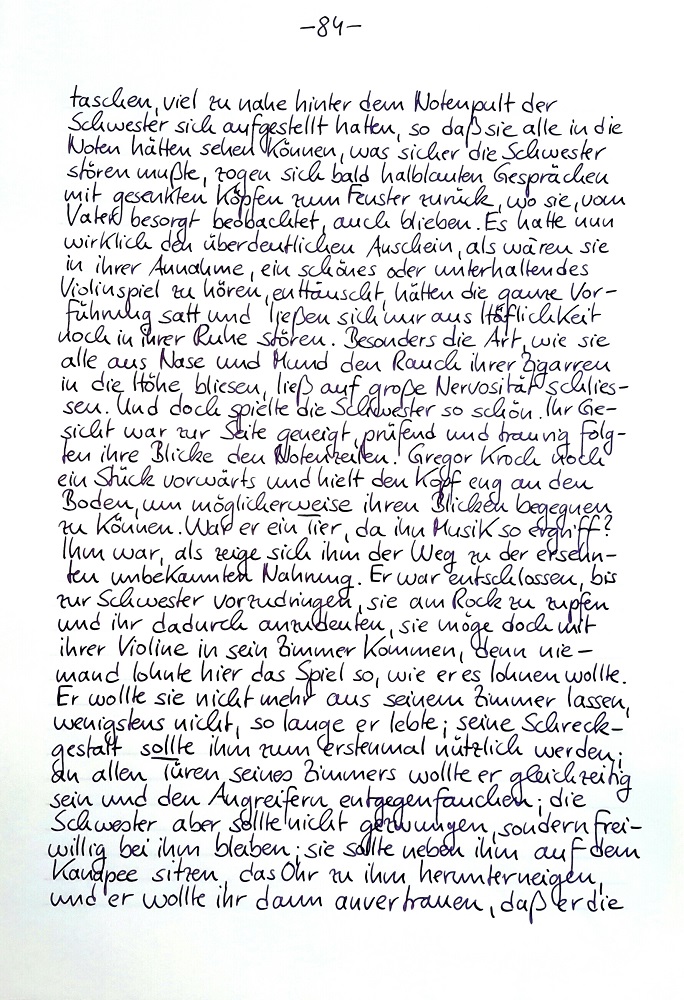 –84–
taschen, viel zu nahe hinter dem Notenpult der
Schwester sich aufgestellt hatten, so daß sie alle in die
Noten hätten sehen können, was sicher die Schwester
stören mußte, zogen sich bald halblauten Gesprächen
mit gesenkten Köpfen zum Fenster zurück, wo sie, vom
Vater besorgt beobachtet, auch blieben. Es hatte nun
wirklich den überdeutlichen Anschein, als wären sie
in ihrer Annahme, ein schönes oder unterhaltendes
Violinspiel zu hören, enttäuscht, hätten die ganze Vor-
führung satt und ließen sich nur aus Höflichkeit
noch in ihrer Ruhe stören. Besonders die Art, wie sie
alle aus Nase und Mund den Rauch ihrer Zigarren
in die Höhe bliesen, ließ auf große Nervosität schlies-
sen. Und doch spielte die Schwester so schön. Ihr Ge-
sicht war zur Seite geneigt, prüfend und traurig folg-
ten ihre Blicke den Notenzeilen. Gregor kroch noch
ein Stück vorwärts und hielt den Kopf eng an den
Boden, um möglicherweise ihren Blicken begegnen
zu können. War er ein Tier, da ihn Musik so ergriff?
Ihm war, als zeige sich ihm der Weg zu der ersehn-
ten unbekannten Nahrung. Er war entschlossen, bis
zur Schwester vorzudringen, sie am Rock zu zupfen
und ihr dadurch anzudeuten, sie möge doch mit
ihrer Violine in sein Zimmer kommen, denn nie-
mand lohnte hier das Spiel so, wie er es lohnen wollte.
Er wollte sie nicht mehr aus seinem Zimmer lassen,
wenigstens nicht, so lange er lebte; seine Schreck-
gestalt sollte ihm zum erstenmal nützlich werden;
an allen Türen seines Zimmers wollte er gleichzeitig
sein und den Angreifern entgegenfauchen; die
Schwester aber sollte nicht gezwungen, sondern frei-
willig bei ihm bleiben; sie sollte neben ihm auf dem
Kanapee sitzen, das Ohr zu ihm herunterneigen,
und er wollte ihr dann anvertrauen, daß er die